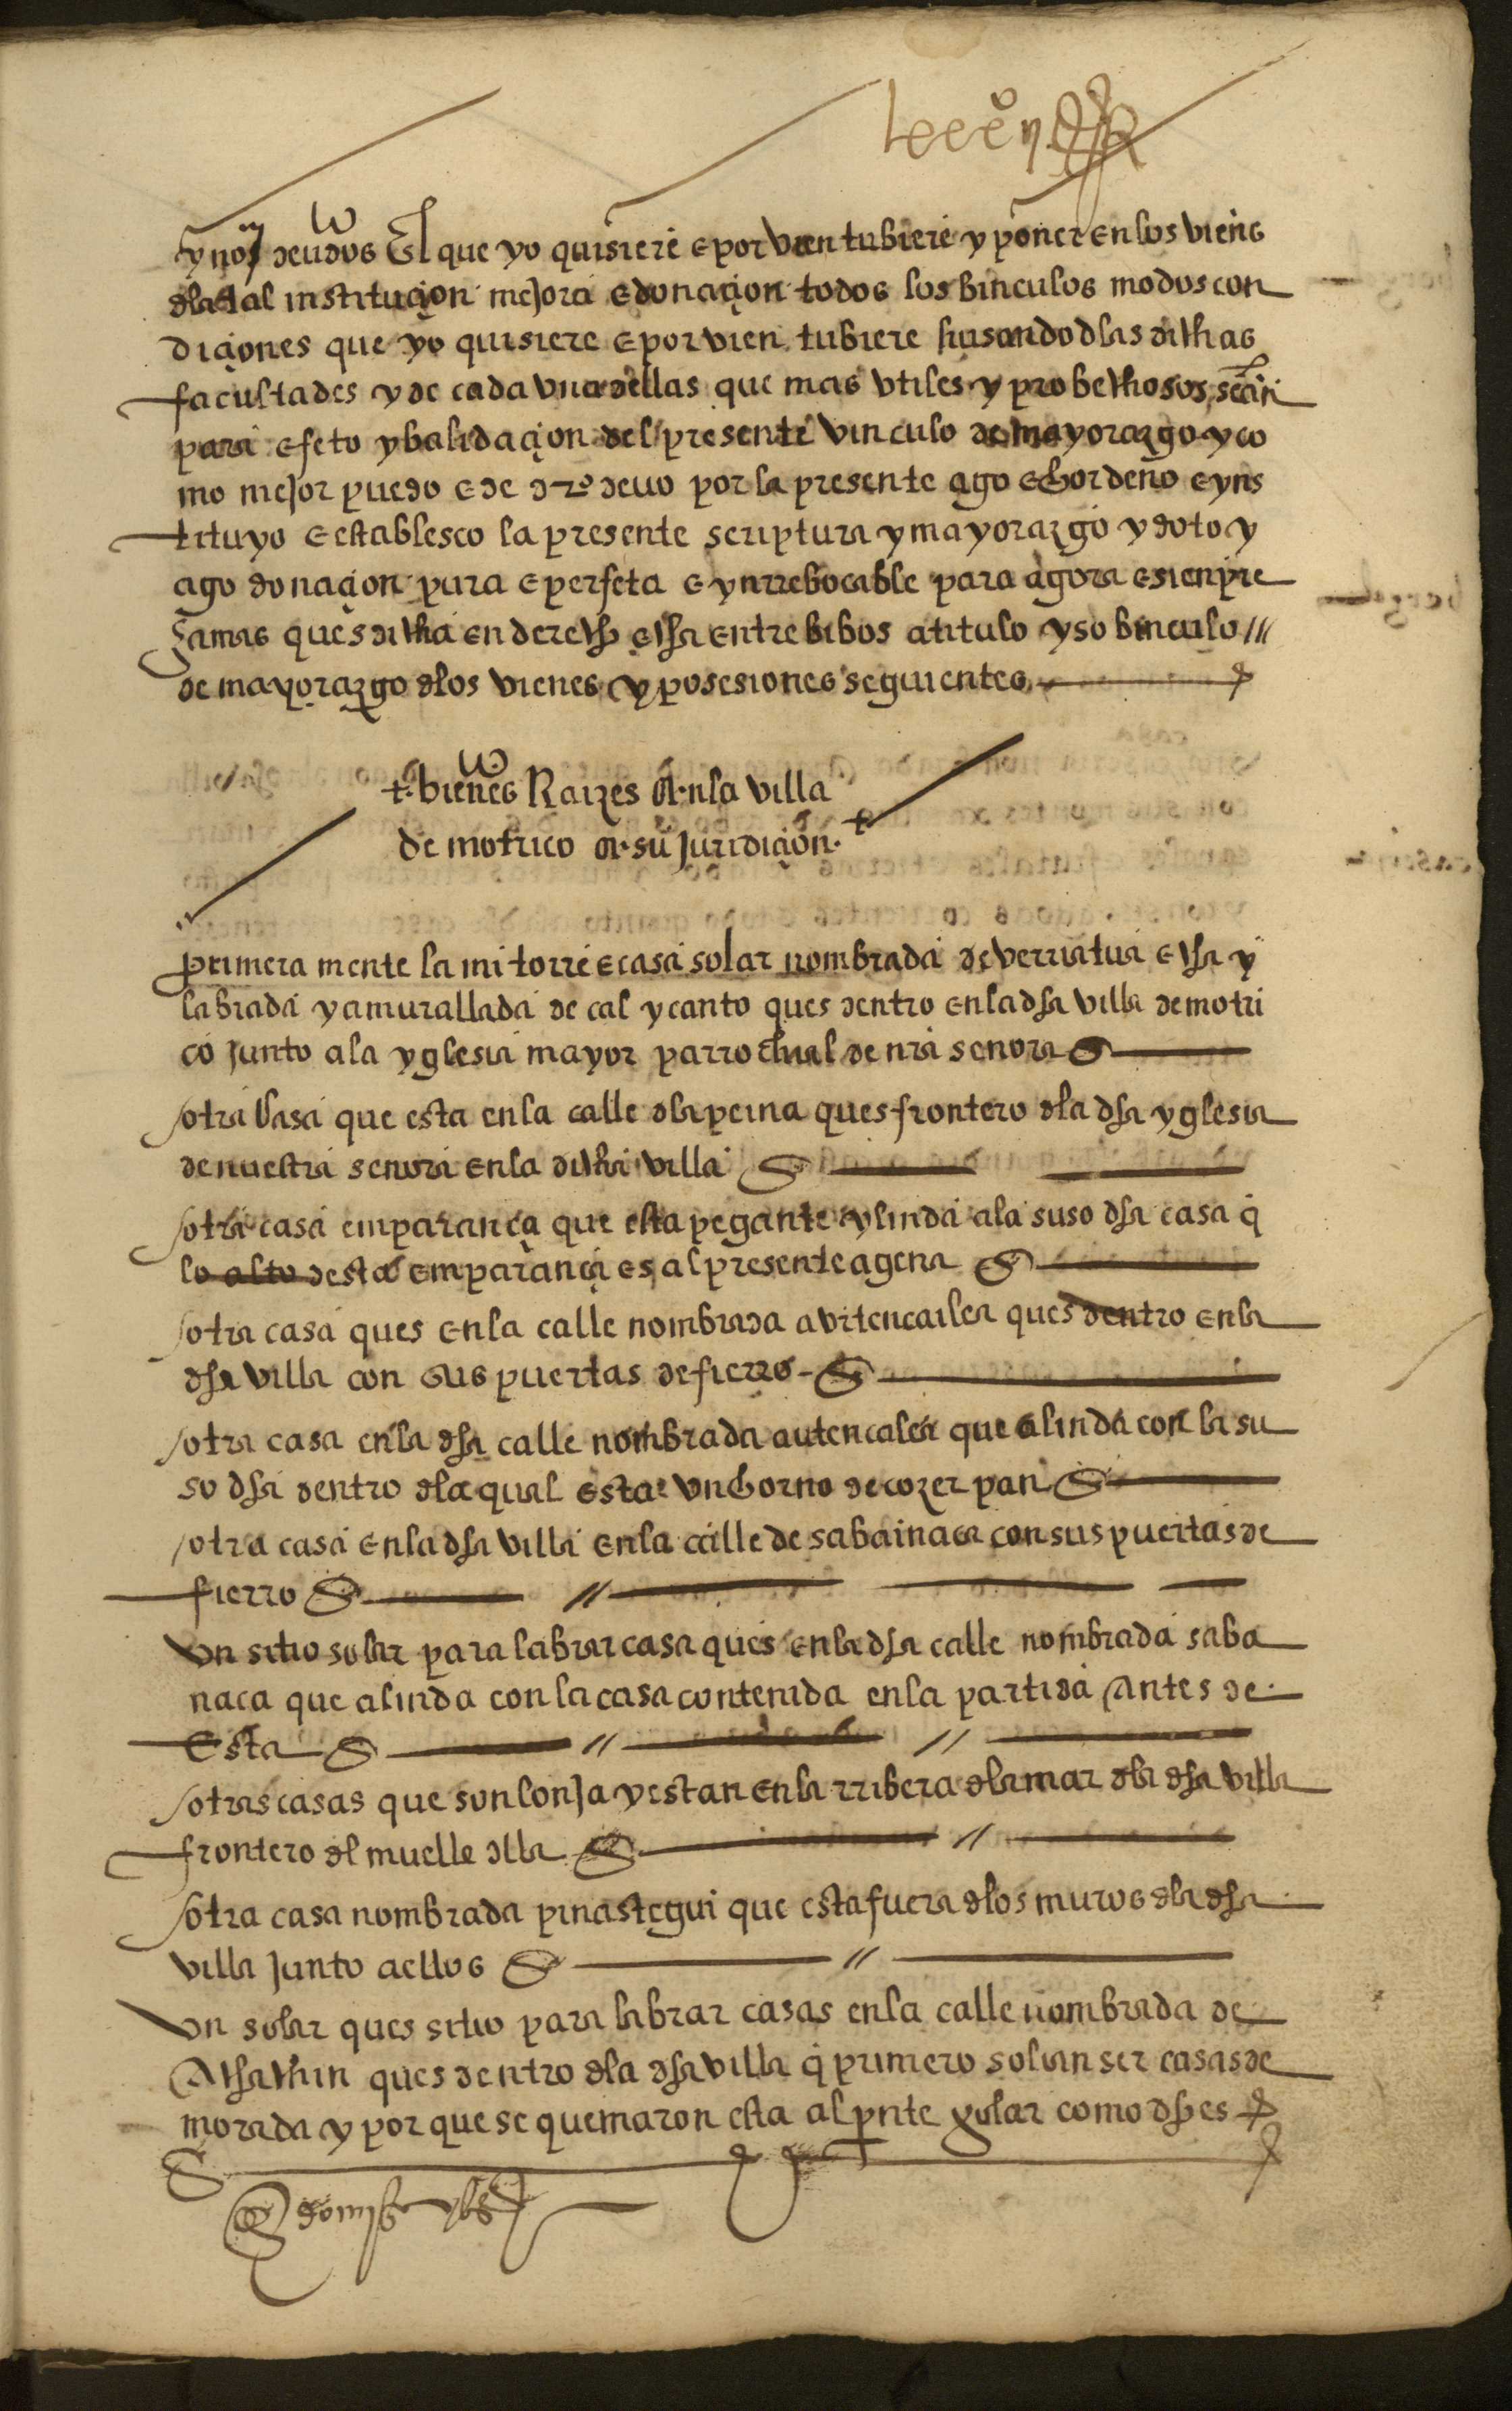 y nos deudos El que yo quisiere e por vien tubiere y poner en los vienes
dla tal instituçion mejora e donaçion todos los binculos modos con
diçiones que yo quisiere e por vien tubiere husando dlas dichas
facultades y de cada vna dellas que mas vtiles y probechosos sean
para efeto y balidaçion del presente vinculo de mayorazgo y co
mo mejor puedo e de dro devo por la presente ago e hordeno e yns
tituyo e establesco la presente scriptura y mayorazgo y doto y
ago donaçion pura e perfeta e ynrrebocable para agora e sienpre
jamas ques dicha en derecho echa entre bibos a titulo y so binculo
de mayorazgo dlos vienes y posesiones seguientes
t. bienes Raizes en la villa
de motrico en su juridiçion.
primera mente la mi torre e casa solar nombrada de verriatua echa y
labrada y amurallada de cal y canto ques dentro en la dha villa de motri
co junto a la yglesia mayor parrochial de nra senora
otra casa que esta en la calle dla peina ques frontero dla dha yglesia
de nuestra senora en la dicha villa
otra casa emparança que esta pegante y linda a la suso dha casa q
lo alto desta emparança es al presente agena
otra casa ques en la calle nombrada avitencailea ques dentro en la
dha villa con sus puertas de fierro
otra casa en la dha calle nombrada autencalea que alinda con la su
so dha dentro dla qual esta vn horno de cozer pan
otra casa en la dha villa en la calle de sabainaca con sus puertas de
fierro
Vn sitio solar para labrar casa ques en la dha calle nombrada saba
naca que alinda con la casa contenida en la partida antes de
Esta
otras casas que son lonja y estan en la rribera dla mar dla dha villa
frontero dl muelle dlla
otra casa nombrada pinastegui que esta fuera dlos muros dla dha
villa junto a ellos
Vn solar ques sitio para labrar casas en la calle nombrada de
Achachin ques dentro dla dha villa q primero solian ser casas de
morada y por que se quemaron esta al pnte solar como dho es